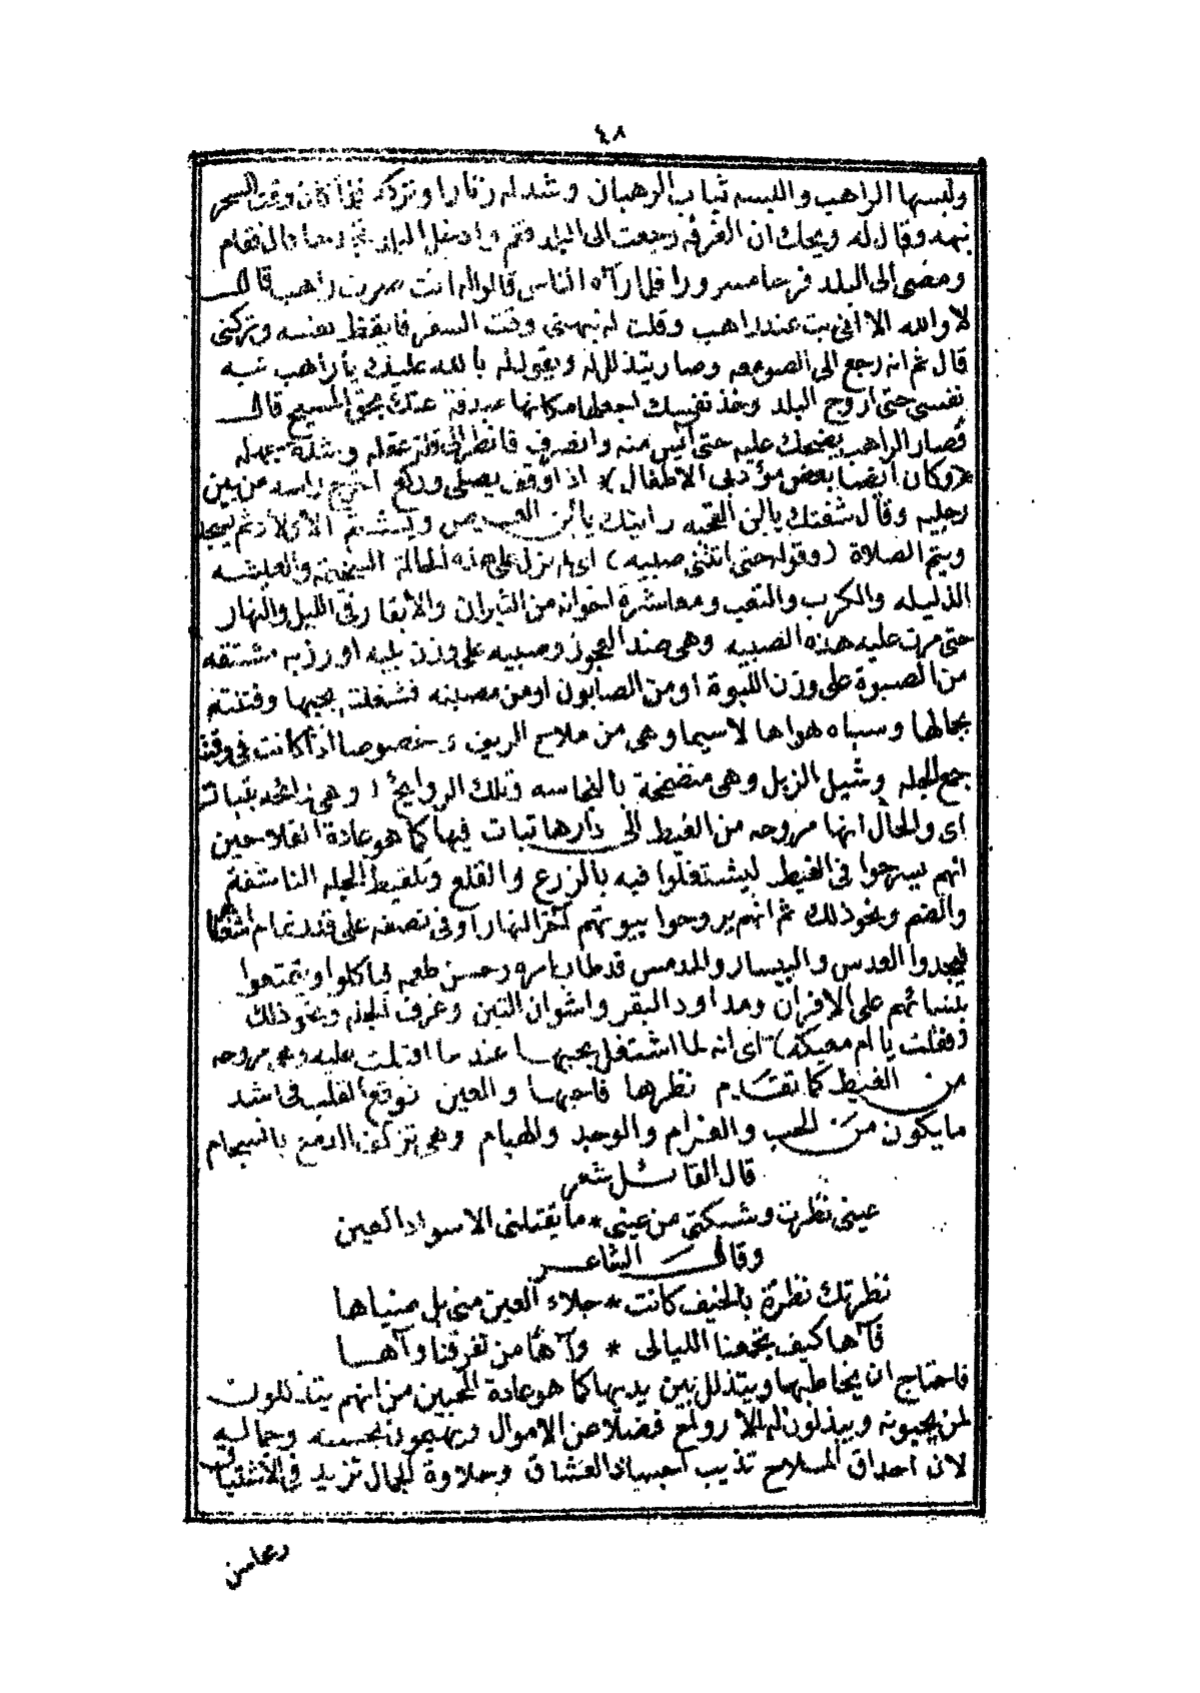 ٤٨
ولبسها الراهب والبسه ثياب الرهبان وشد له زنارا وتركه فلما كان وقت السحر
نبهه وقال له ويحك ان الفرقه رجعت الى البلد فقم وادخل البلد فقام
ومضى الى البلد فرحا مسرورا فلما رآه الناس قالوا له انت صرت راهب قال
لا والله الا انى بت عند راهب وقلت له نبهنى وقت السحر فايقظ نفسه وتركنى
قال ثم انه رجع الى الصومعه وصار يتذلل له ويقول له بالله عليك يا راهب نبه
نفسى حتى اروح البلد وخذ نفسك اجعلها مكانها صدقة عنك بحق المسيح قال
فصار الراهب يضحك عليه حتى أيس منه وانصرف فانظر الى قلة عقله وشدة جهله
(وكان ايضا بعض مؤدبى الاطفال)* اذا وقف يصلى وركع اخرج راسه من بين
رجليه وقال شفتك يا ابن القحبه رايتك يا ابن ويشتم الاولاد ثم يسجد
ويتم الصلاة (وقوله حتى اتتنى صبيه) اى لم يزل على هذه الحالة والعيشه
الذليله والكرب والتعب ومعاشرة اخوانه من الثيران والابقار فى الليل والنهار
حتى مرت عليه هذه الصبيه وهى ضد العجوز وصبيه على وزن بليه او رزيه مشتقه
من الصبوة على وزن اللبوة او من الصابون او من مصبنه فشغلته بحبها وفتنته
بجمالها وسباه هواها لاسيما وهى من ملاح الريف خصوصا اذا كانت فى وقت
جمع الجله وشيل الزبل وهى متضمخة بالنجاسه وتلك الروايح (وهى رائحه تبات)
اى والحال انها مروحه من الغيط الى دارها تبات فيها كما هو عادة الفلاحين
انهم يسرحوا فى الغيط ليشتغلوا فيه بالزرع والقلع وتلقيط الجله الناشفة
والضم ونحو ذلك ثم انهم يروحوا بيوتهم آخر النهار او فى نصفه على قدر تمام اشغالهم
ليجدوا العدس والبيسار والمدمس قد طاب امره وحسن طعمه فياكلوا ويتمتعوا
بنسائهم على الافران ومداود البقر واشوان التبن وغرف الجله ونحو ذلك
(وقلت يا ام معيكه) اى انه لما اشتغل بحبها عند ما اقبلت عليه وهى مروحه
من الغيط كما تقدم نظرها فاحبها والعين توقع القلب فى اشد
ما يكون من الحب والغرام والوجد والهيام وهى تترك الدمع بانسجام
قال القائل شعر
عينى نظرت وشبكتى من عينى * ما يقتلنى الا سواد العين
وقال الشاعر
نظرتك نظرة بالخيف كانت * جلاء العين منى بل منياها
فآها كيف تجمعنا الليالى * وآها من تفرقنا وآها
فاحتاج ان يخاطبها ويتذلل بين يديها كما هو عادة المحبين من انهم يتذللون
لمن يحبونه ويبذلون له الارواح فضلا عن الاموال ويهيمون بحسنه وجماله
لان احداق الملاح تذيب اجساد العشاق وحلاوة الجمال تزيد فى الاشتياق